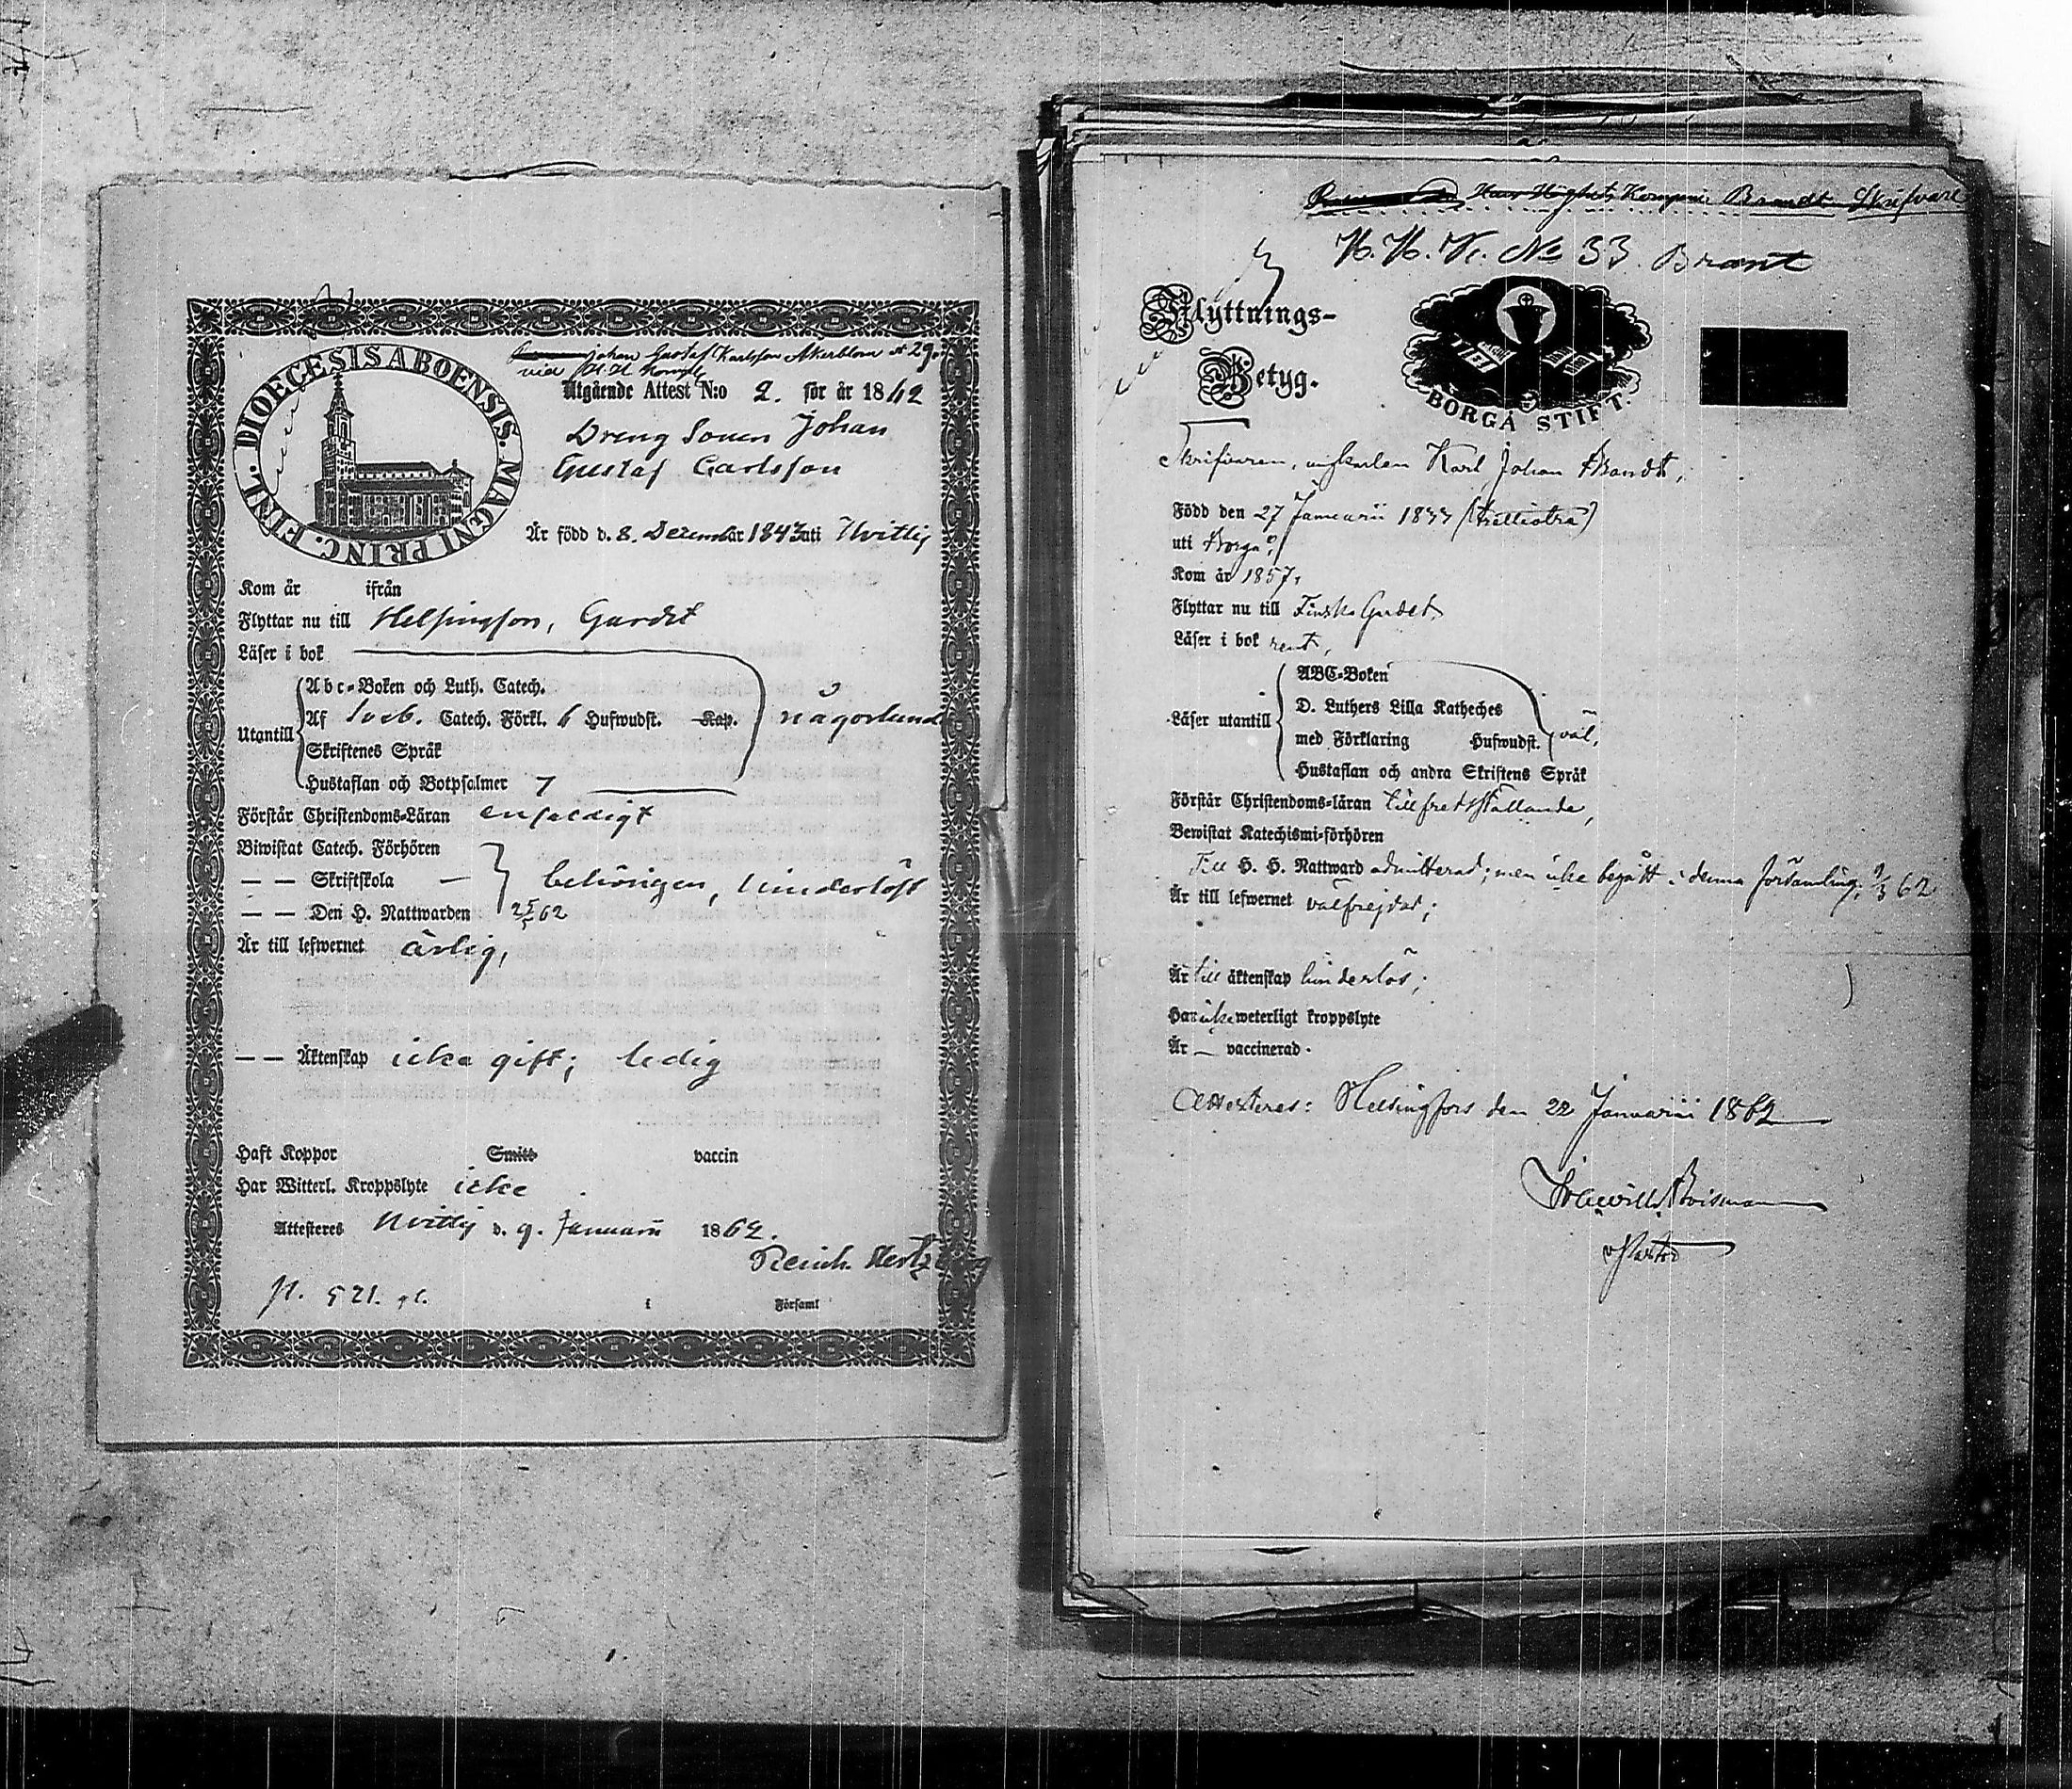 DIOECESIS ABOENSIS. MAGNI PRINC. FINL.
Johan Gustaf Karlsson Åkerblom № 29.
vid H. H. Komp.
Utgående Attest N:o 2. för år 1862
Dreng Sonen Johan
Gustaf Carlsson
Är född d. 8. December år 1843 uti Hvittis
Kom år ifrån
Flyttar nu till Helsingfors, Gardet
Läser i bok
Utantill
Abc-Boken och Luth. Catech.
Af Sveb. Catech. Förkl. 6 Hufwudst. Kap. någorlunda
Skriftenes Språk
Hustaflan och Botpsalmer 7
Förstår Christendoms-Läran enfaldigt
Biwistat Catech. Förhören
— — Skriftskola — behörigen, hinderlöst
— — Den H. Nattwarden 62
Är till lefwernet ärlig,
— — Äktenskap icke gift; ledig
Haft Koppor Smitt vaccin
Har Witterl. Kroppslyte icke
Attesteres Hvittis d. 9. Januarii 1862.
Reinh. Hertzberg
p. 521.
i Församl
Hans Höghets Kompani Brandt Skrifvare
H. H. K. № 33. Brant
Flyttnings-
Betyg.
BORGÅ STIFT.
Skrifvaren, ungkarlen Karl Johan Brandt,
Född den 27 Januarii 1833 (trettiotre)
uti Borgå;
Kom år 1857,
Flyttar nu till Finska Gardet,
Läser i bok rent,
Läser utantill
ABC-Boken
D. Luthers Lilla Katheches
med Förklaring Hufwudst. väl,
Hustaflan och andra Skriftens Språk
Förstår Christendoms-läran tillfredsställande,
Bewistat Katechismi-förhören
Till H. H. Nattward admitterad; men icke begått i denna församling, 62
Är till lefwernet välfrejdad;
Är till äktenskap hinderlös;
Har icke weterligt kroppslyte
Är — vaccinerad.
Attesteras: Helsingfors den 22 Januarii 1862
Boisman
v Pastor